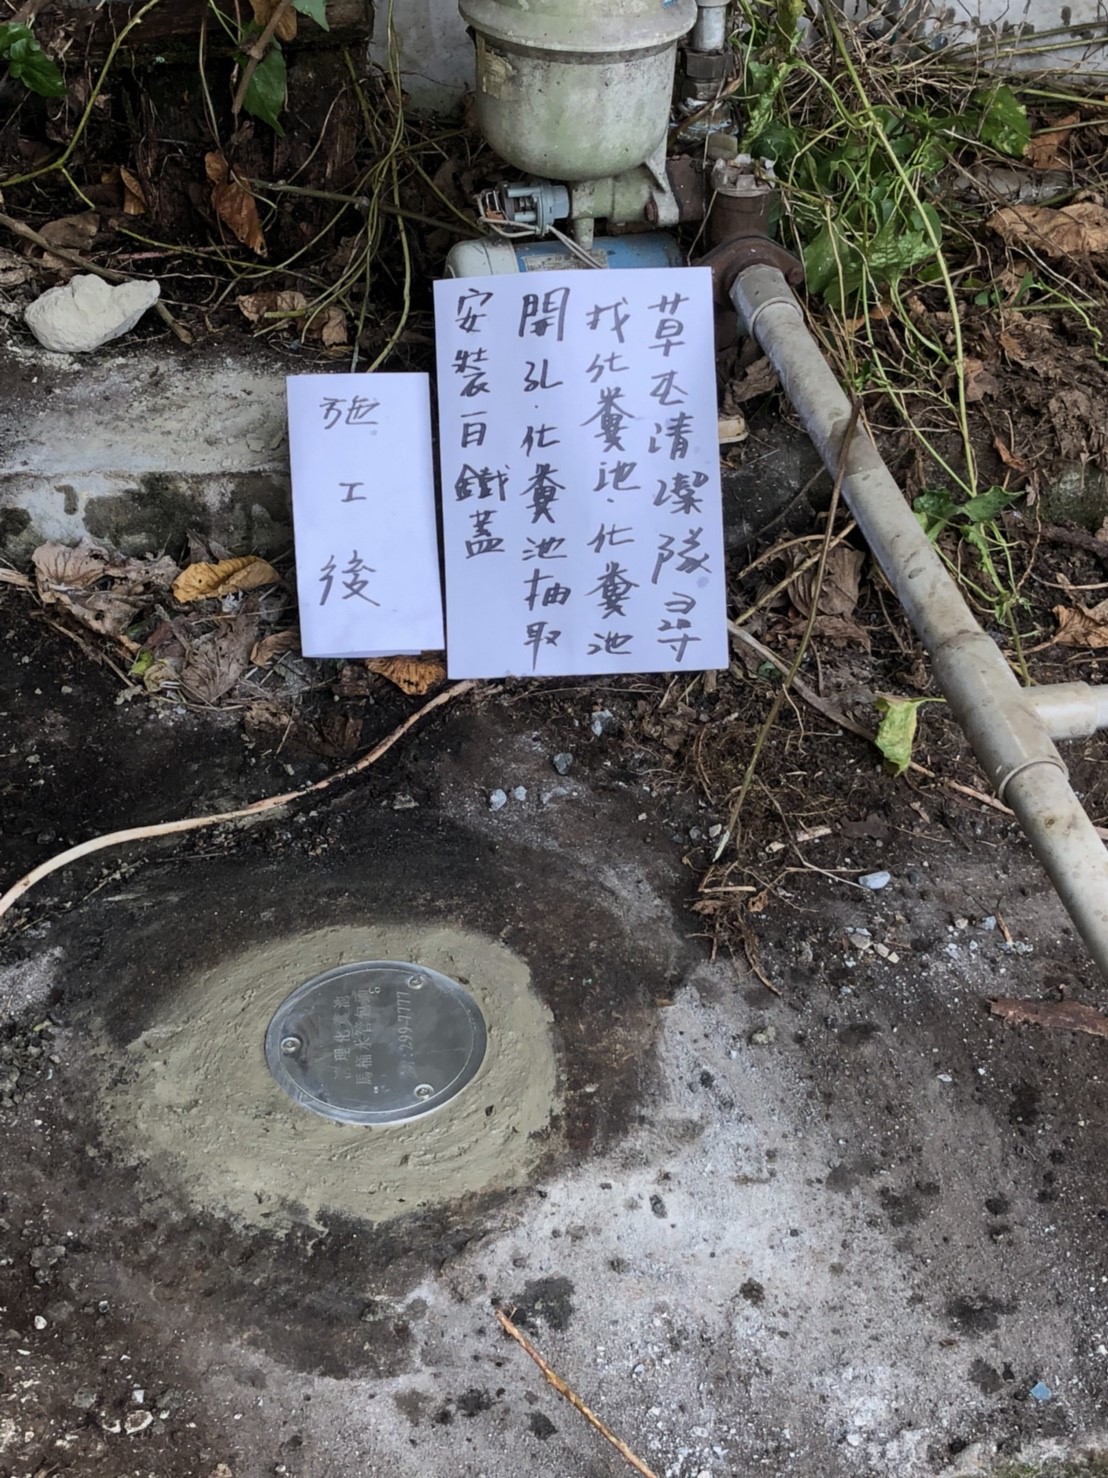 草屯清潔隊尋
找化糞池.化糞池
開孔.化糞池抽取
安裝百鐵蓋
施工後
清理化糞池
馬桶水管